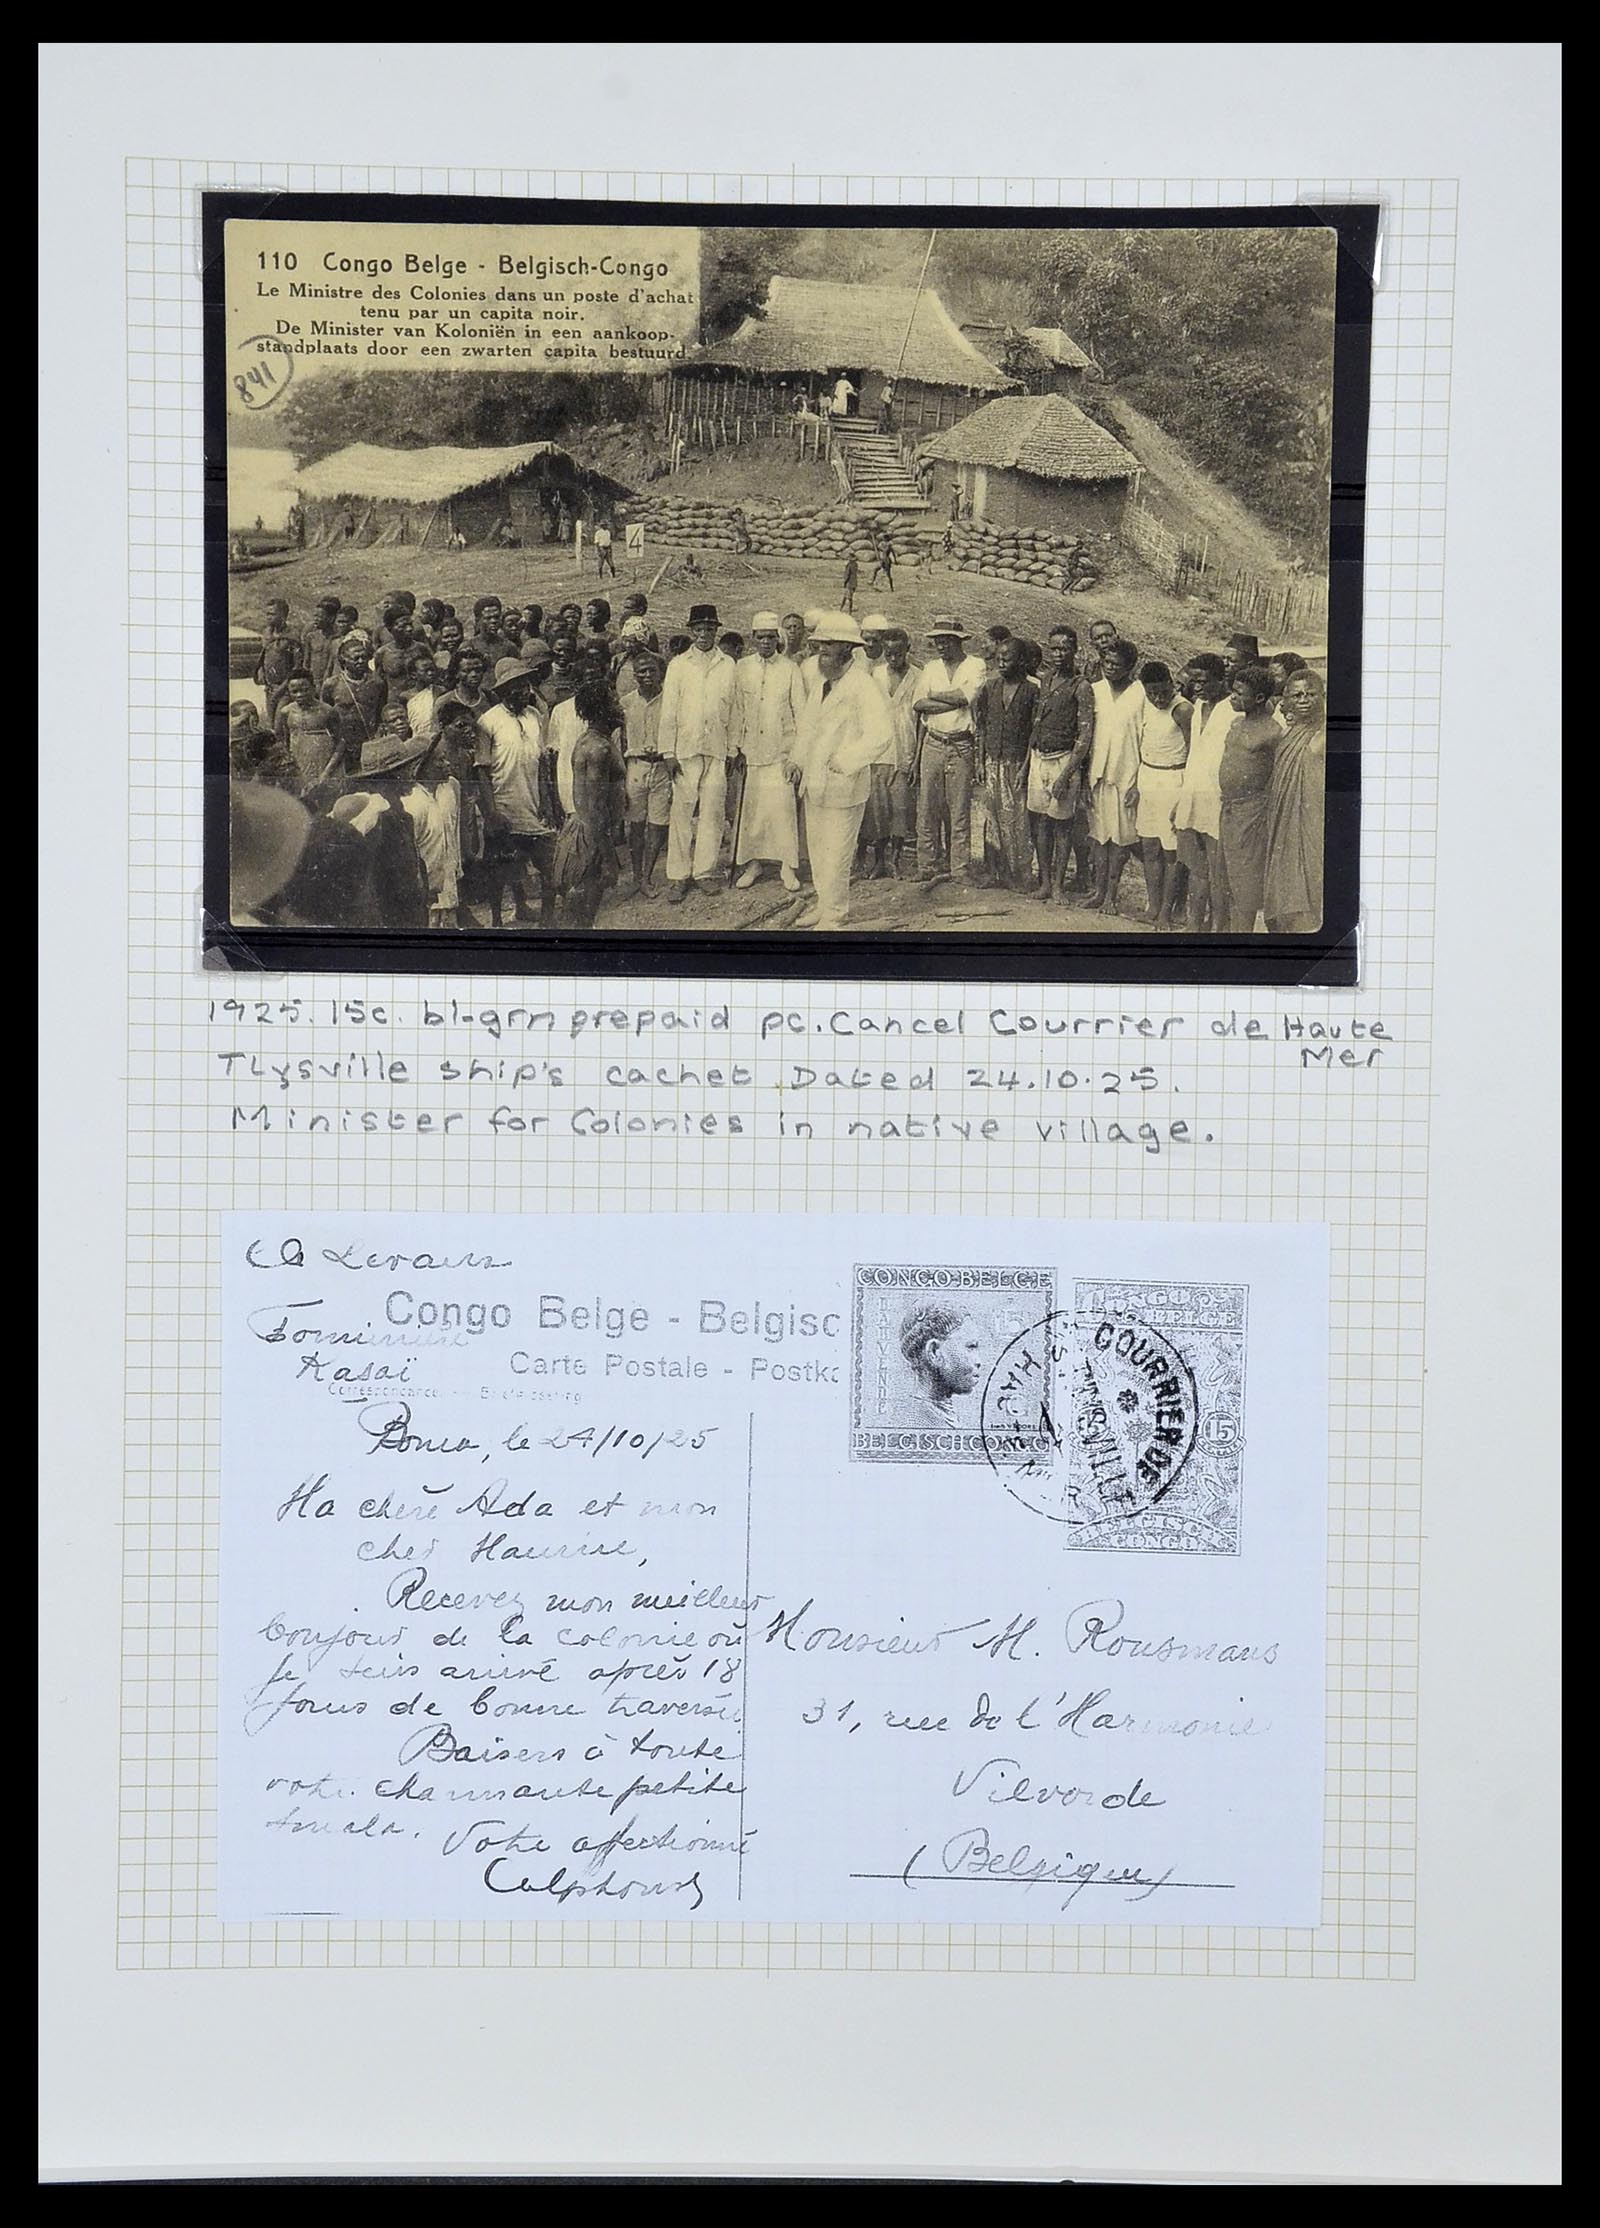 110 Congo Belge - Belgisch-Congo
Le Ministre des Colonies dans un poste d'achat
tenu par un capita noir.
De Minister van Koloniën in een aankoop-
standplaats door een zwarten capita bestuurd.
841
4
1925. 15c. bl-grn prepaid pc. Cancel Courrier de Haute
Mer
TLysville ship's cachet. Dated 24.10.25.
Minister for Colonies in native village.
Congo Belge - Belgisc
Kasaï
Carte Postale - Postka
Correspondance
Boma, le 24/10/25
CONGO BELGE
15
BELGISCH CONGO
CONGO BELGE
15
BELGISCH
CONGO
COURRIER DE
Ma chère Ada et mon
cher Maurice,
Recevez mon meilleur
bonjour de la colonie où
je suis arrivé après 18
jours de bonne traversée
Baisers à toute
votre charmante petite
Votre affectionné
Monsieur M. Rousmans
31, rue de l'Harmonie
Vilvorde
(Belgique)